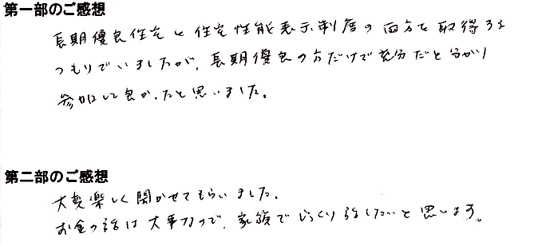 第一部のご感想
長期優良住宅と住宅性能表示制度の両方を取得する
つもりでいましたが、長期優良の方だけで充分だと分かり
参加して良かったと思いました。
第二部のご感想
大変楽しく聞かせてもらいました。
お金の話は大事なので、家族でじっくり話したいと思います。